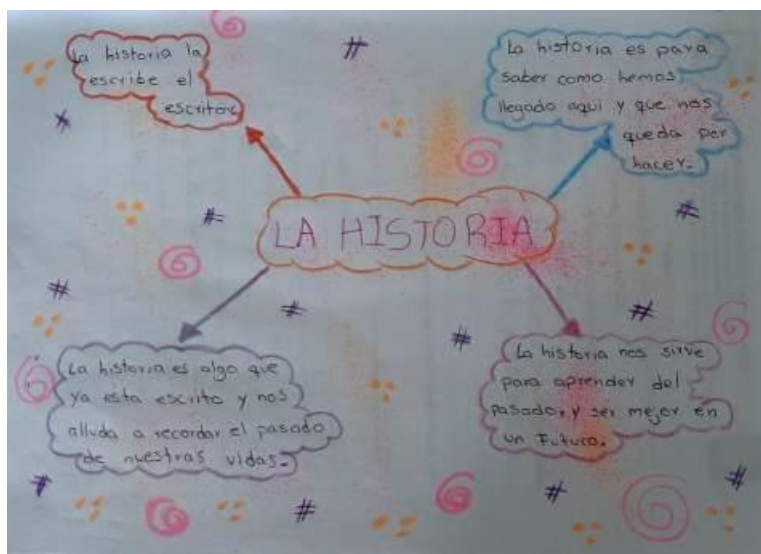 La historia la
escribe el
escritor.
La historia es para
saber como hemos
llegado aqui y que nos
queda por
hacer.
LA HISTORIA
La historia es algo que
ya esta escrito y nos
alluda a recordar el pasado
de nuestras vidas.
La historia nos sirve
para aprender del
pasado, y ser mejor en
un Futuro.